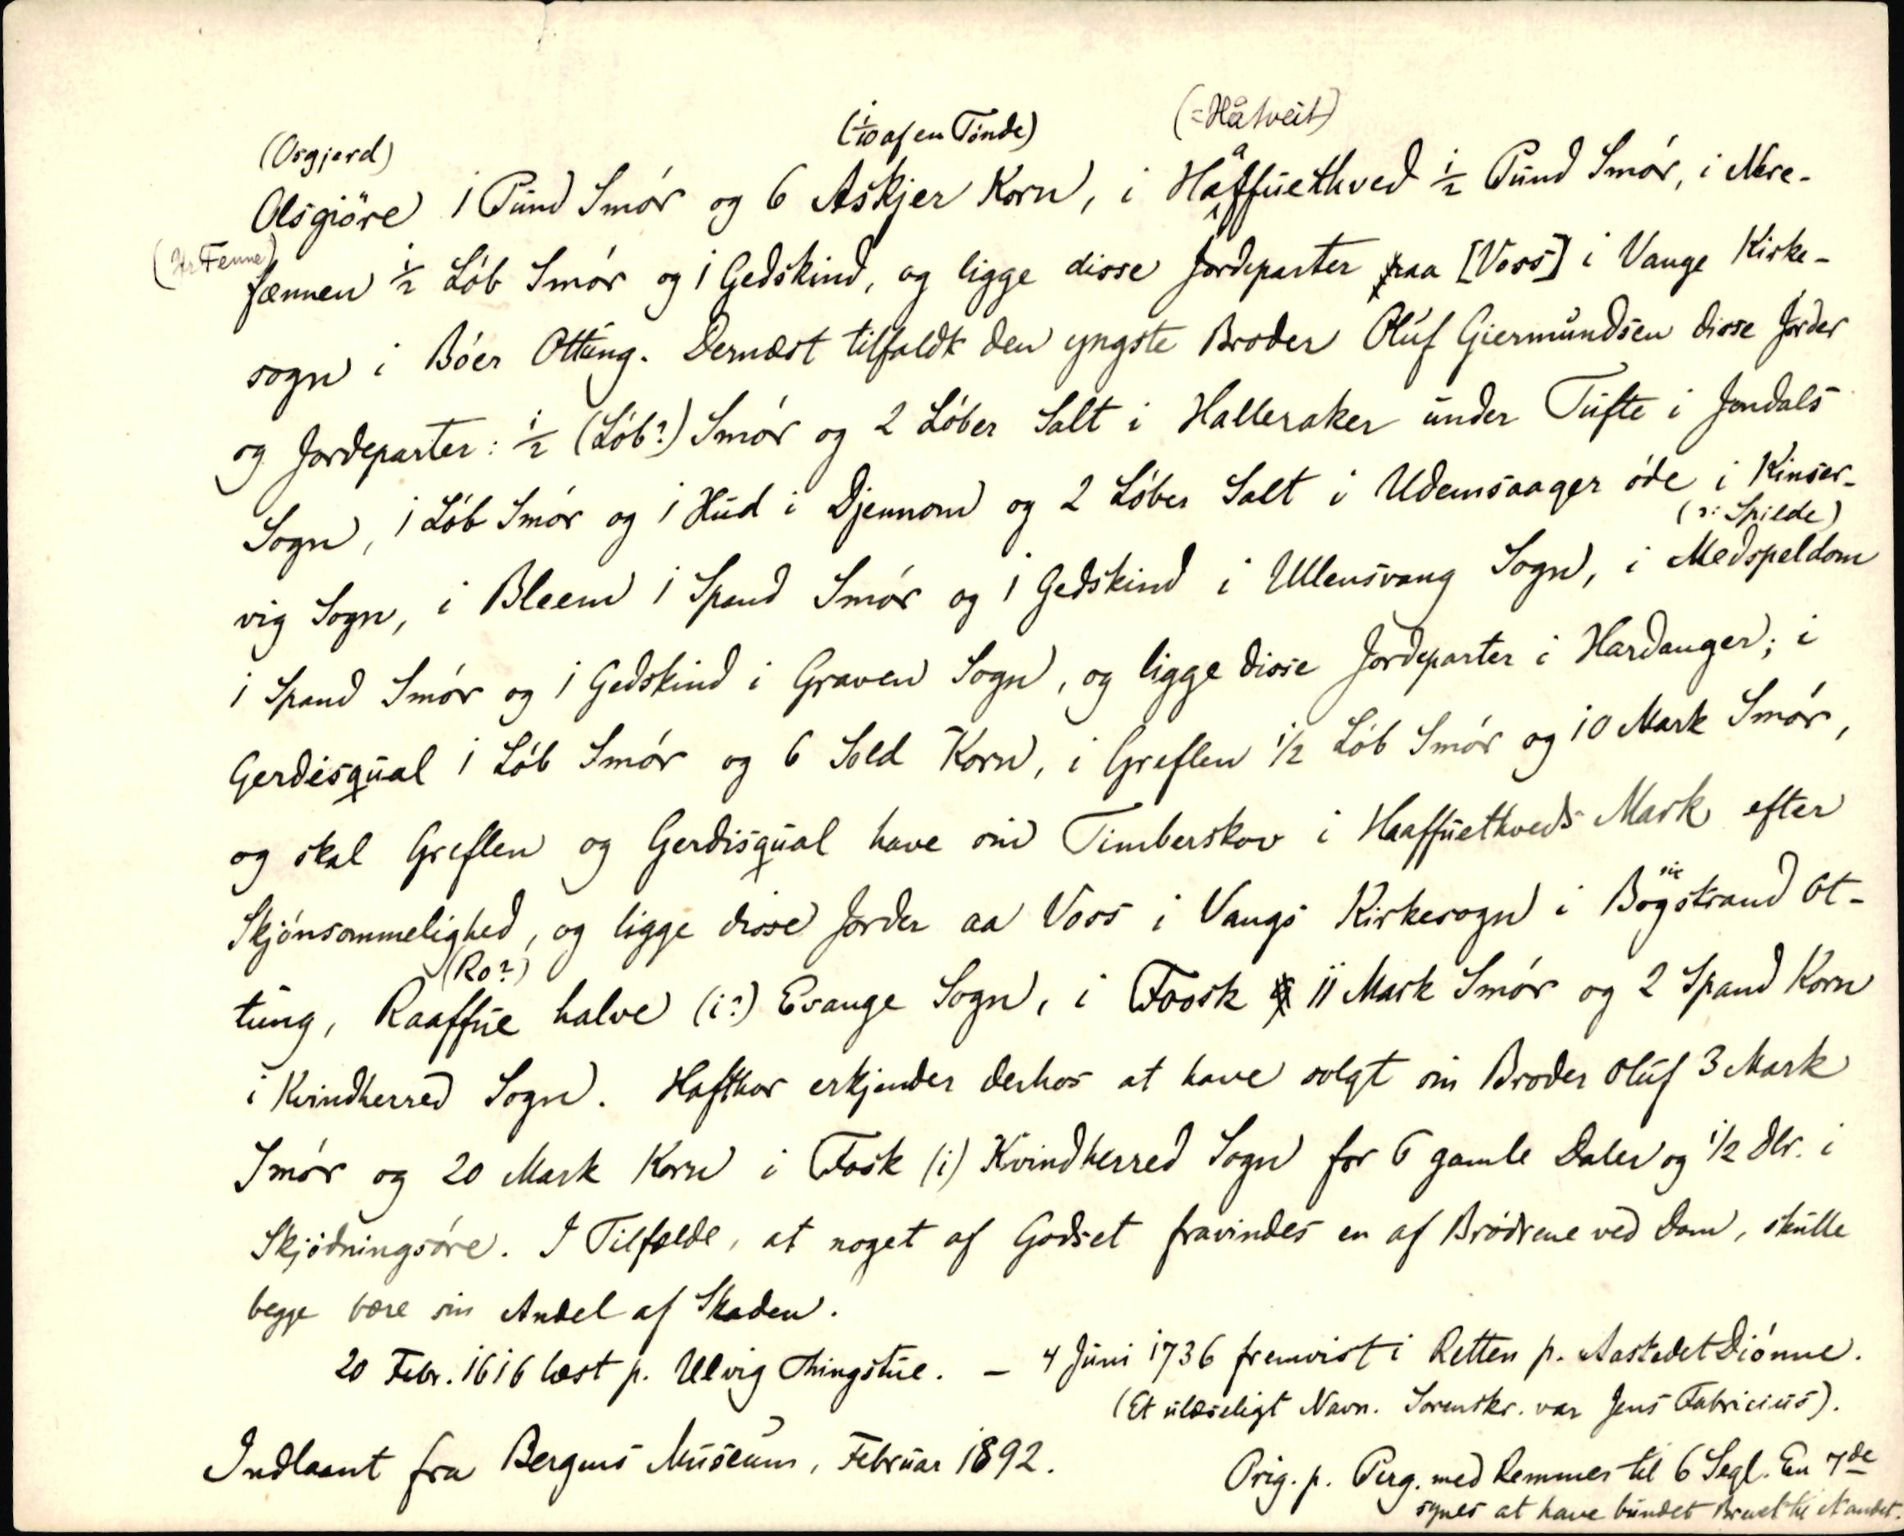 (Osgjerd) (1/10 af en Tønde) (=Håtveit)
Olsgiöre 1 Pund Smór og 6 Askjer Korn, i Haaffuethved 1/2 Pund Smór, i Nere-
(Fenne)
fænnen 1/2 Lób Smór og 1 Gedskind, og ligge disse Jordeparter paa [Voss] i Vange Kirke-
sogn i Bóer Ottung. Dernæst tilfaldt den yngste Broder Oluf Giermundsen disse Jorder
og Jordeparter: 1/2 (Lób?) Smór og 2 Lóber Salt i Halleraker under Tufte i Jondals
Sogn, 1 Lób Smór og 1 Hud i Djennom og 2 Lóber Salt i Udemsaager óde i Kinser-
(ɔ: Spilde)
vig Sogn, i Bleem 1 Spand Smór og 1 Gedskind i Ullensvang Sogn, i Medspeldom
1 Spand Smór og 1 Gedskind i Graven Sogn, og ligge disse Jordeparter i Hardanger; i
Gerdisqual 1 Lób Smór og 6 Sold Korn, i Greflen 1/2 Lób Smór og 10 Mark Smór,
og skal Greflen og Gerdisqual have sin Timberskov i Haaffuethveds Mark efter
sic
Skjónsommelighed, og ligge disse Jorder aa Voss i Vangs Kirkesogn i Bögstrand Ot-
(Ro?)
tung, Raaffue halve (i?) Evange Sogn, i Foosk 11 Mark Smór og 2 Spand Korn
i Kvindherred Sogn. Hafthor erkjender derhos at have solgt sin Broder Oluf 3 Mark
Smór og 20 Mark Korn i Fosk (i) Kvindherred Sogn for 6 gamle Daler og 1/2 Dlr. i
Skjódningsóre. I Tilfælde, at noget af Godset fravindes en af Bródrene ved Dom, skulle
begge bære sin Andel af Skaden.
20 Febr. 1616 læst p. Ulvig Thingstue. — 4 Juni 1736 fremvist i Retten p. Aastedet Diónne.
(Et ulæseligt Navn. Sorenskr. var Jens Fabricius).
Indlaant fra Bergens Museum, Februar 1892.
Orig. p. Perg. med Remmer til 6 Segl. En 7de
synes at have bundet Brevet til et andet